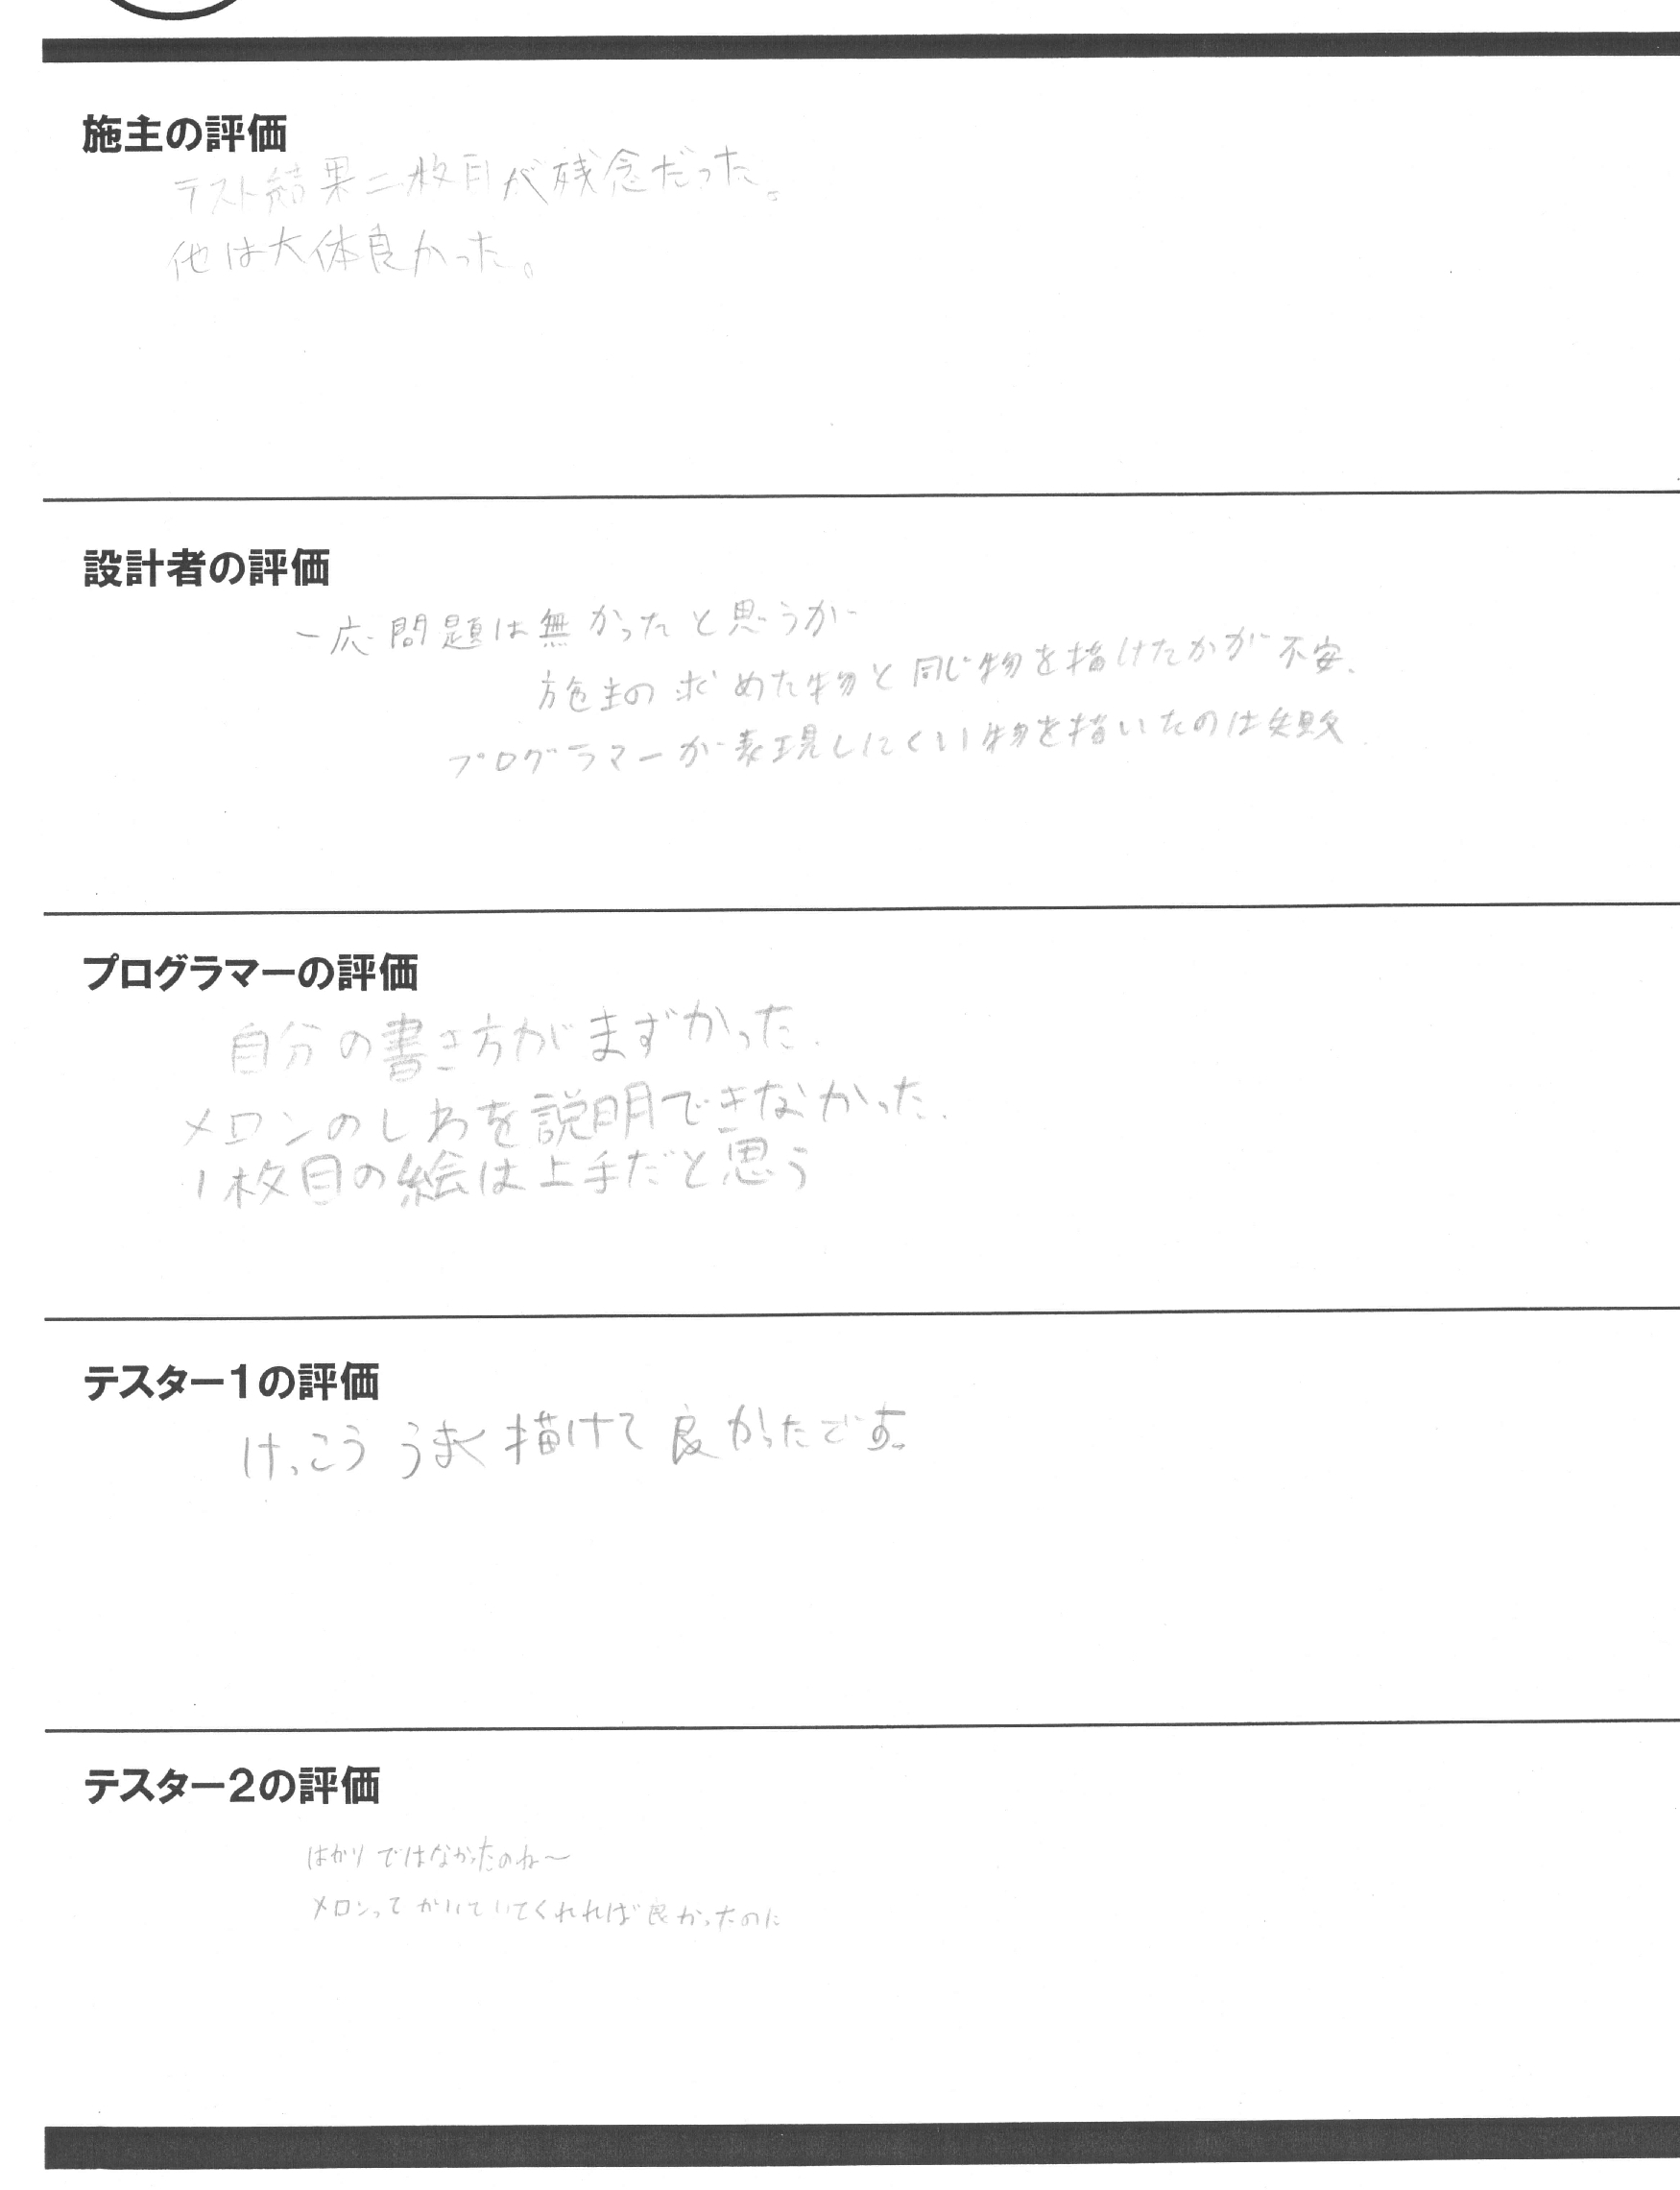 施主の評価
テスト結果二枚目が残念だった。
他は大体良かった。
設計者の評価
一応問題は無かったと思うが
施主の求めた物と同じ物を描けたかが不安、
プログラマーが表現しにくい物を描いたのは失敗
プログラマーの評価
自分の書き方がまずかった.
メロンのしわを説明できなかった.
1枚目の絵は上手だと思う
テスター1の評価
けっこううまく描けて良かったです。
テスター2の評価
はかりではなかったのね〜
メロンってかいていてくれれば良かったのに